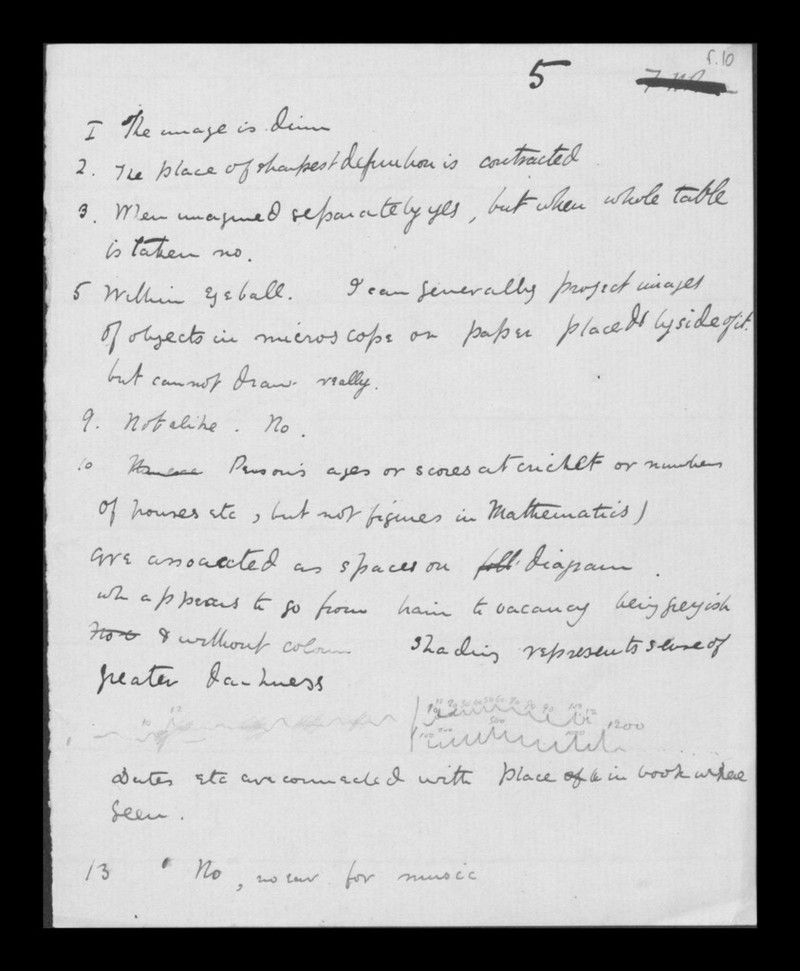 f.10
5
I The image is dim
2. The place of sharpest definition is contracted
3. When imagined separately yes, but when whole table
is taken no.
5 Within eyeball. I can generally project images
of objects in microscope on paper placed by side of it.
but cannot draw really.
9. Not alike. No.
10 Persons ages or scores at cricket or numbers
of houses etc, but not figures in Mathematics)
are associated as spaces on diagram.
wh appears to go from to vacancy being greyish
& without colour shading represents sense of
greater darkness
10 12
10 20 30 40 50 60 70 80 90 100
100 200 500 1000 1200
Dates etc are connected with place in book where
seen.
13 No, no ear for music